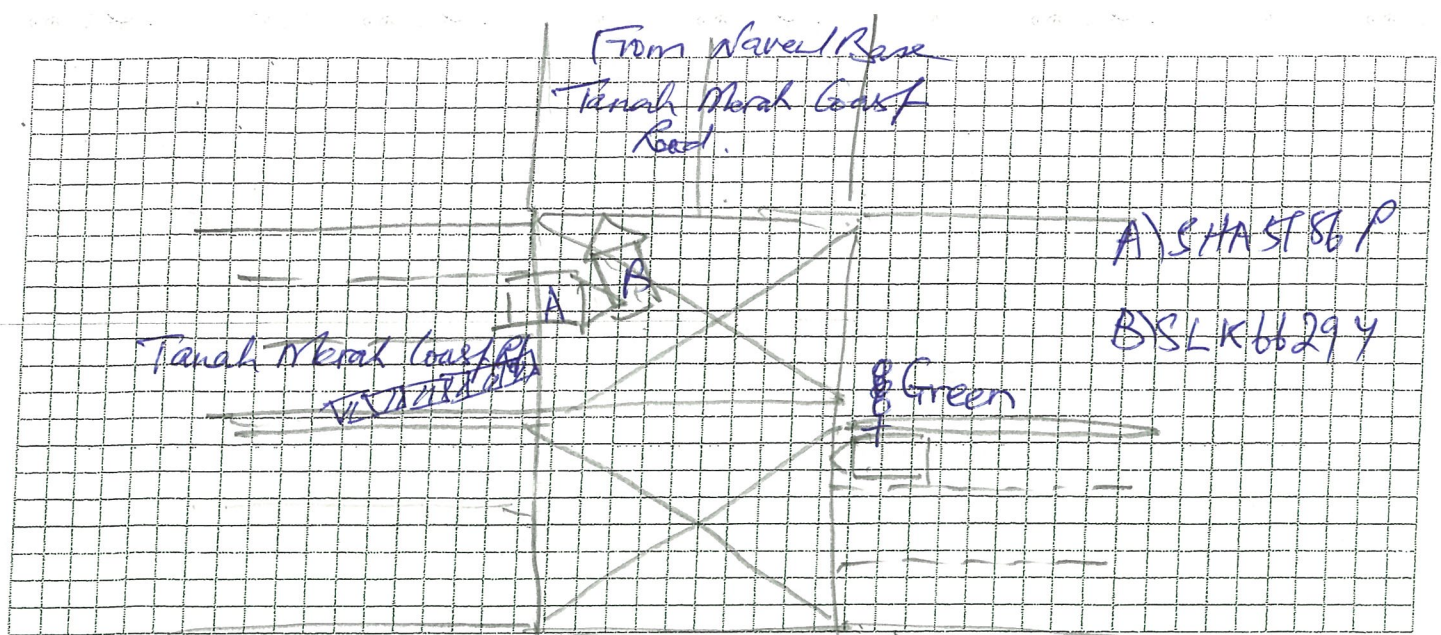 From Navel Base
Tanah Merah Coast
Road.
A) SHA 5786 P
B
A
B) SLK 6629 Y
Tanah Merah Coast Rd
Green